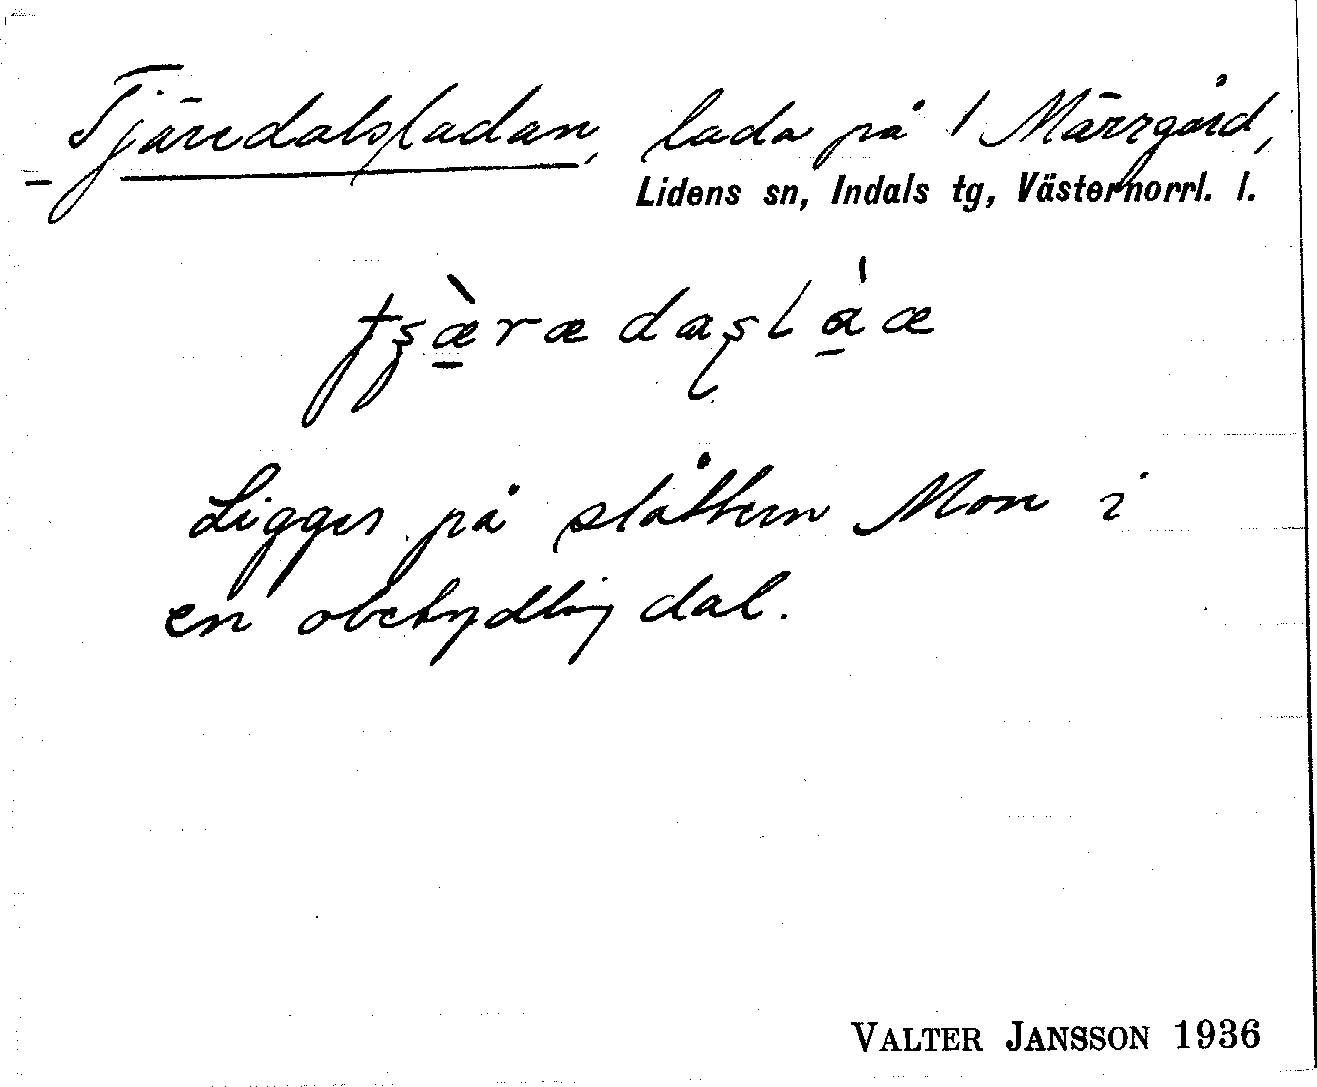 Tjäredalsladan, lada på 1 Märrgård,
Lidens sn, Indals tg, Västernorrl. l.
Ligger på slåttern Mon i
en obetydlig dal.
VALTER JANSSON 1936